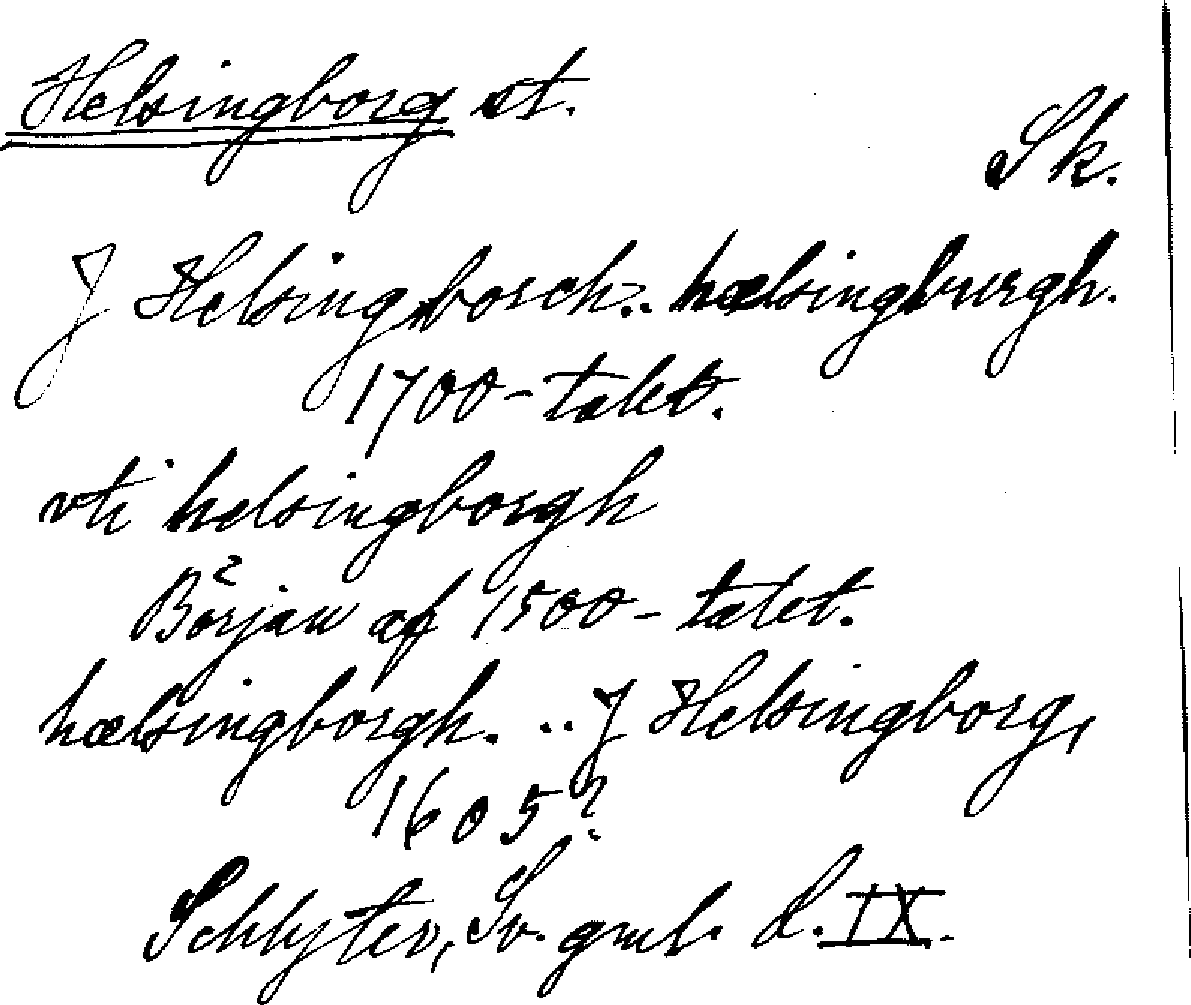 Helsingborg st.
Sk.
J Helsingborch .. hælsingburgh.
1700-talet.
vti helsingborgh
Början af 1500-talet.
hælsingborgh. .. J Helsingborg,
1605?
Schlyter, Sv. gml. L. IX.